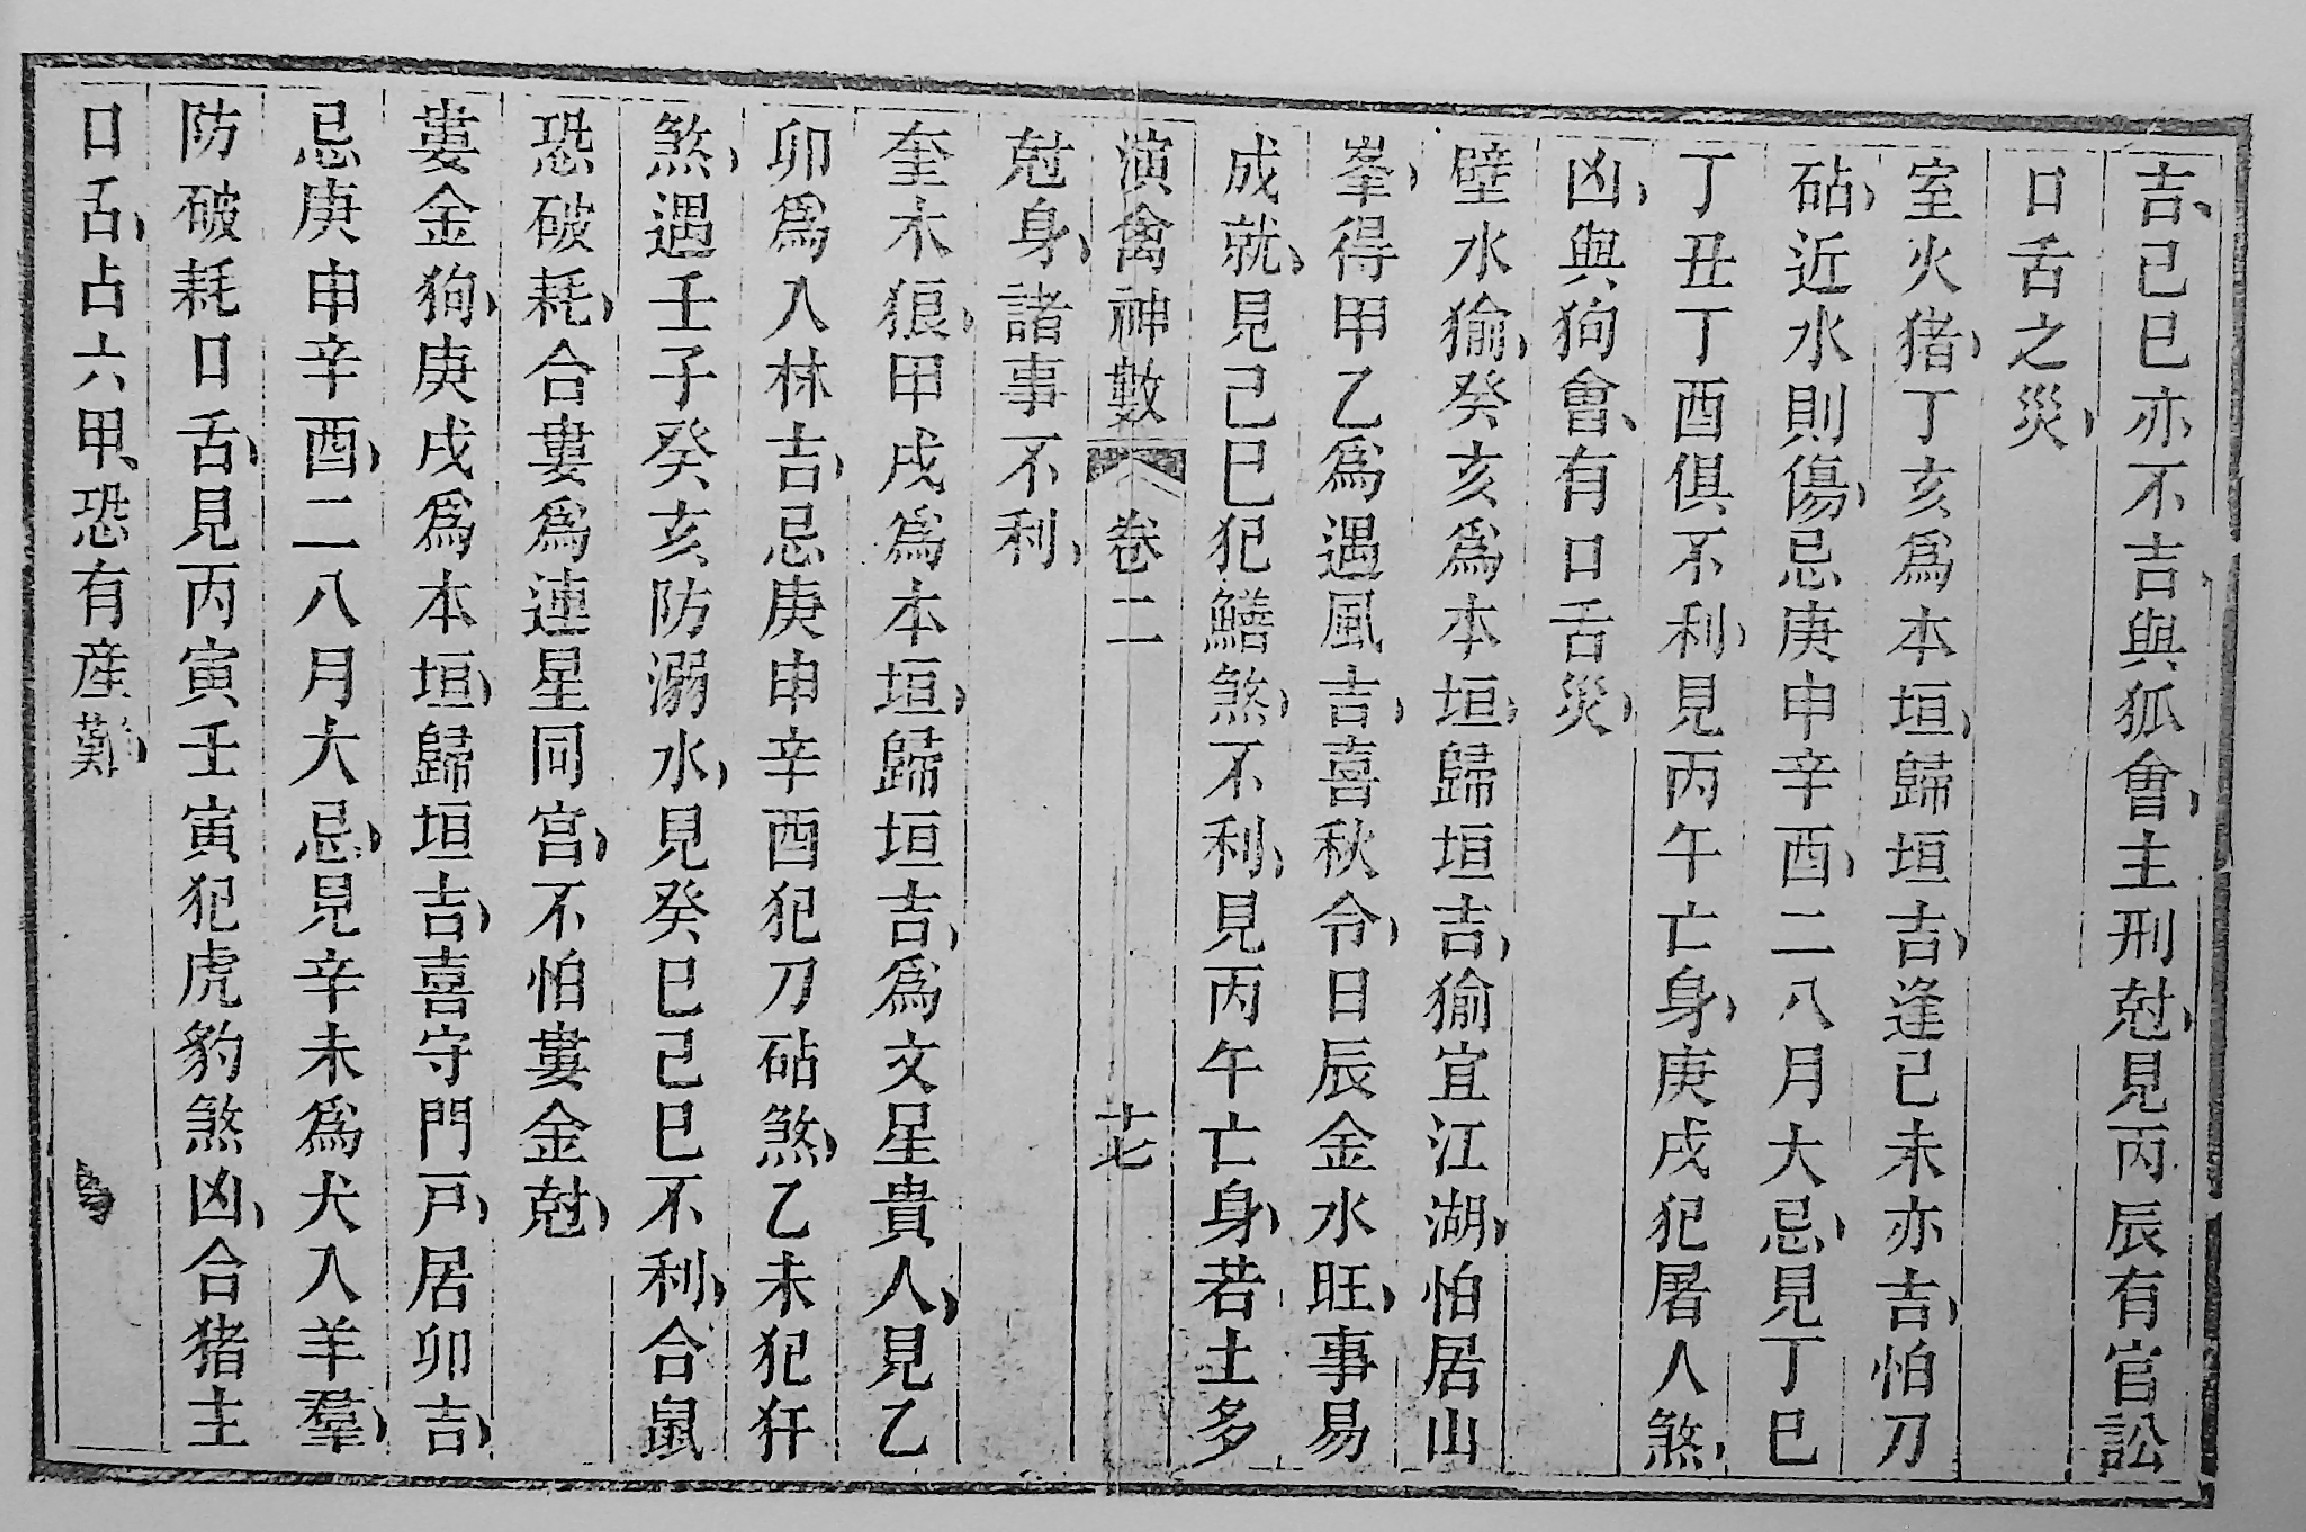 吉、己巳亦不吉、與狐會、主刑尅、見丙辰有官訟
口舌之災、
室火猪、丁亥爲本垣、歸垣吉、逢己未亦吉、怕刀
砧、近水則傷、忌庚申辛酉、二八月大忌、見丁巳
丁丑丁酉俱不利、見丙午亡身、庚戌犯屠人煞、
凶、與狗會、有口舌災、
壁水㺄、癸亥爲本垣、歸垣吉、㺄宜江湖、怕居山
峯、得甲乙爲遇風吉、喜秋令、日辰金水旺、事易
成就、見己巳犯鱔煞、不利、見丙午亡身、若土多
演禽神數 卷二 十七
尅身、諸事不利、
奎木狼、甲戌爲本垣、歸垣吉、爲文星貴人、見乙
卯爲入林吉、忌庚申辛酉犯刀砧煞、乙未犯犴
煞、遇壬子癸亥防溺水、見癸巳己巳不利、合鼠
恐破耗、合婁爲連星同宮、不怕婁金尅、
婁金狗、庚戌爲本垣、歸垣吉、喜守門戸、居卯吉、
忌庚申辛酉、二八月大忌、見辛未爲犬入羊羣、
防破耗口舌、見丙寅壬寅犯虎豹煞凶、合猪主
口舌、占六甲、恐有産難、